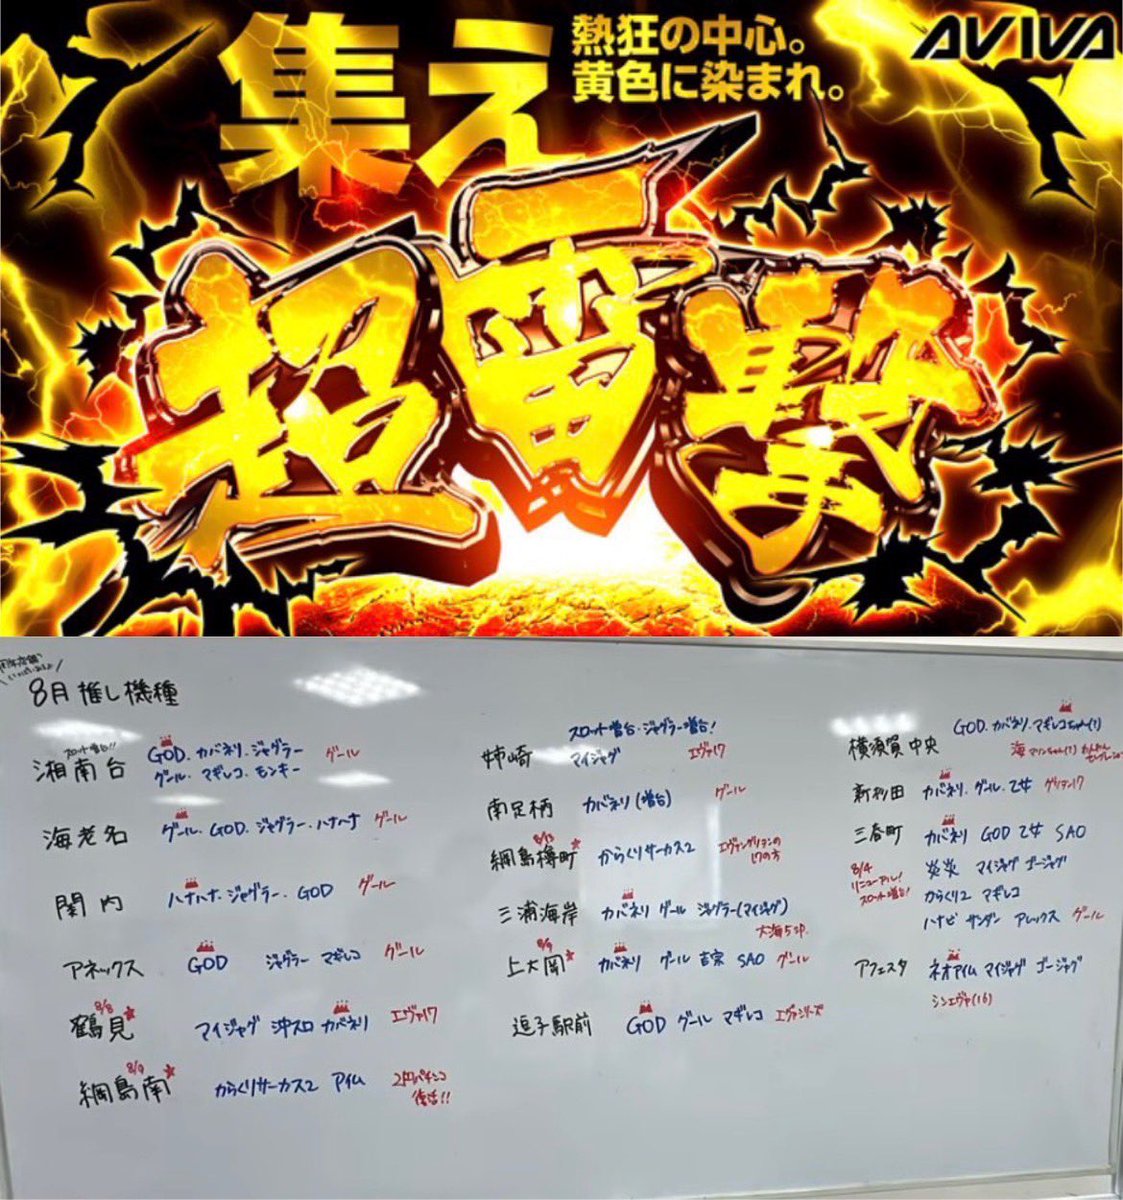 集え
熱狂の中心。
黄色に染まれ。
AVIVA
超雷撃
8月推し機種
スロット増台!!
湘南台 GOD. カバネリ. ジャグラー グール
グール. マギレコ. モンキー
海老名 グール. GOD. ジャグラー. ハナハナ グール
関内 ハナハナ. ジャグラー. GOD グール
アネックス GOD ジャグラー マギレコ グール
8/8
鶴見 マイジャグ 沖スロ カバネリ エヴァ17
8/9
綱島南 からくりサーカス2 アイム 2円パチンコ
復活!!
スロット増台・ジャグラー増台!
姉崎 マイジャグ エヴァ17
南足柄 カバネリ(増台) グール
8/3
綱島樽町 からくりサーカス2 エヴァンゲリヲンの
17の方
三浦海岸 カバネリ グール ジャグラー(マイジャグ)
大海5
8/9
上大岡 カバネリ グール 吉宗 SAO グール
逗子駅前 GOD グール マギレコ エヴァシリーズ
GOD. カバネリ. マギレコ
横須賀中央 海 マリンちゃん
新杉田 カバネリ. グール. 乙女
三春町 カバネリ GOD 乙女 SAO
8/4
リニューアル!
スロット増台!
炎炎 マイジャグ ゴージャグ
からくり2 マギレコ
ハナビ サンダー アレックス グール
アフェスタ ネオアイム マイジャグ ゴージャグ
シンエヴァ(16)